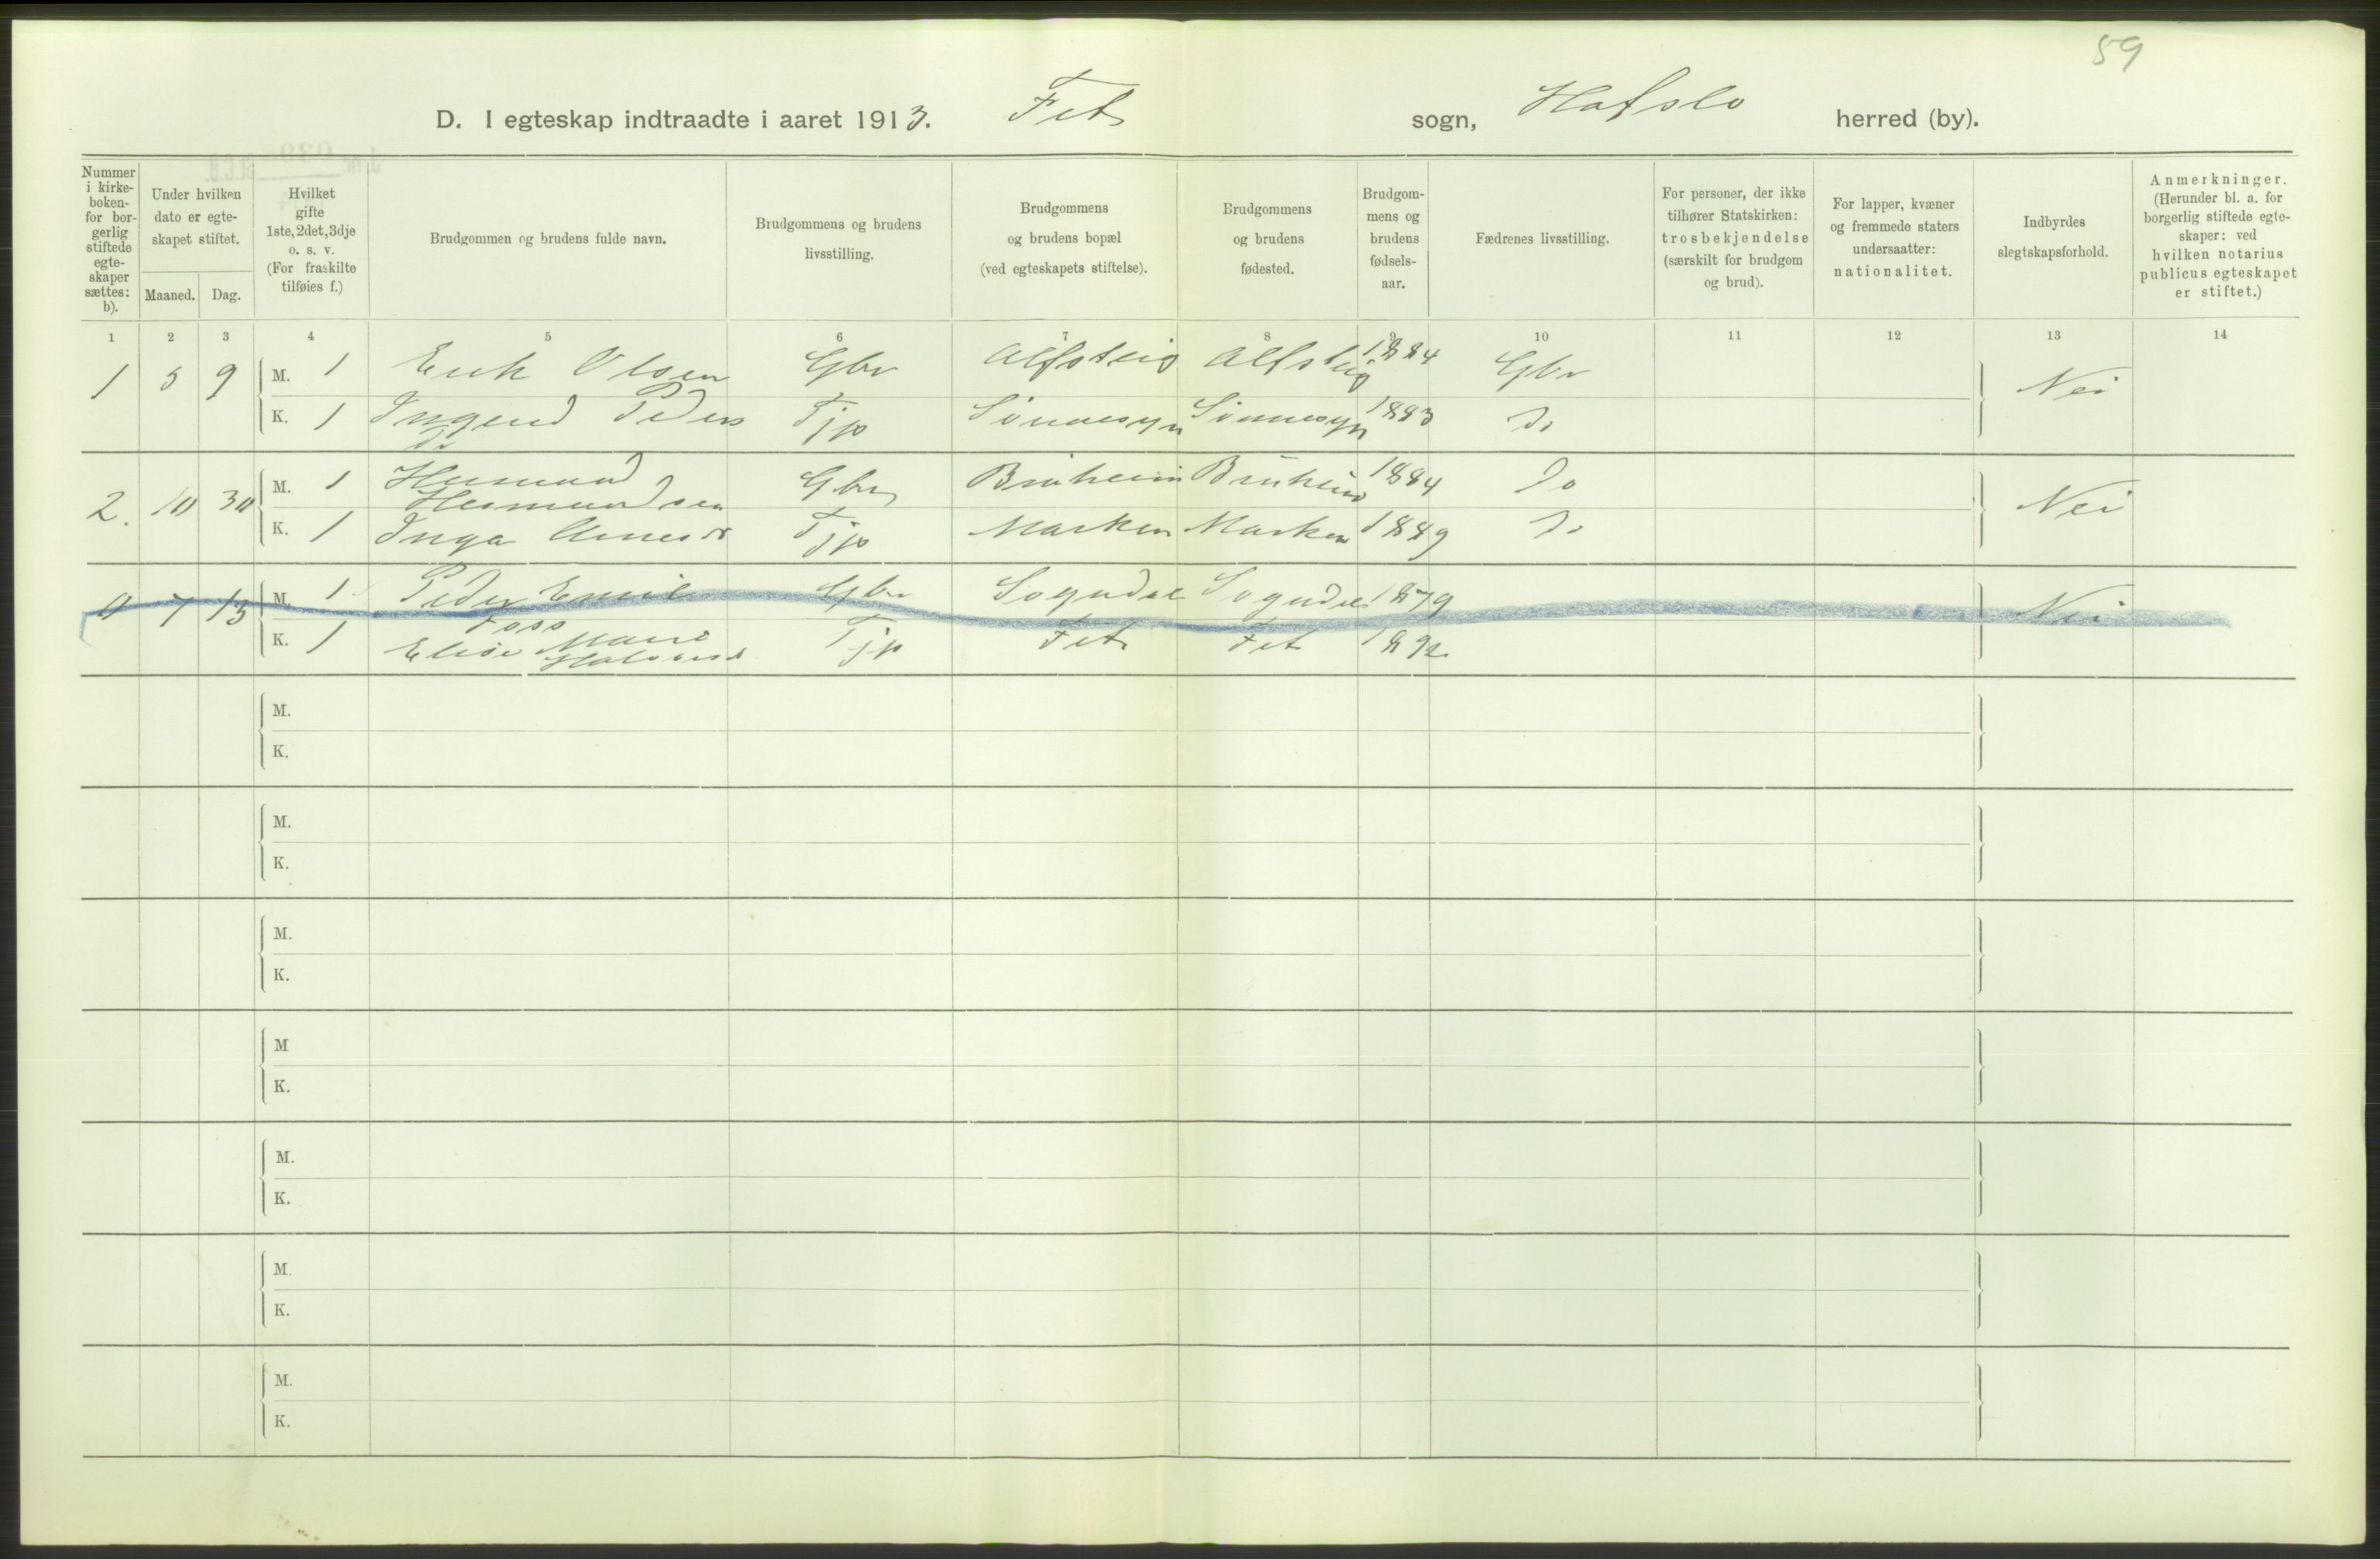 59
D. I egteskap indtraadte i aaret 1913. Fet sogn, Hafslo herred (by).
Nummer i kirke- boken- for bor- gerlig stiftede egte- skaper sættes: b).
Under hvilken dato er egte- skapet stiftet.
Maaned. Dag.
Hvilket gifte 1ste, 2det, 3dje o. s. v. (For fraskilte tilføies f.)
Brudgommen og brudens fulde navn.
Brudgommens og brudens livsstilling.
Brudgommens og brudens bopæl (ved egteskapets stiftelse).
Brudgommens og brudens fødested.
Brudgom- mens og brudens fødsels- aar.
Fædrenes livsstilling.
For personer, der ikke tilhører Statskirken: trosbekjendelse (særskilt for brudgom og brud).
For lapper, kvæner og fremmede staters undersaatter: nationalitet.
Indbyrdes slegtskapsforhold.
Anmerkninger. (Herunder bl. a. for borgerlig stiftede egte- skaper: ved hvilken notarius publicus egteskapet er stiftet.)
1 2 3 4 5 6 7 8 9 10 11 12 13 14
1 5 9 M. 1 Erik Olsen Gbr Alfsteig Alfsteig 1884 Gbr Nei
K. 1 Ingerd Peders dr Tjp Sønnesyn Sønnesyn 1883 Do
2. 10 30 M. 1 Hermund Hermundsen Gbr Bruheim Bruheim 1884 Do Nei
K. 1 Inga Arnesdr Tjp Marken Marken 1889 Do
0 7 13 M. 1 Peder Emil Foss Gbr Sogndal Sogndal 1879 Nei
K. 1 Elise Marie Tjp Fet Fet 1892
M.
K.
M.
K.
M.
K.
M
K.
M.
K.
M.
K.
M.
K.